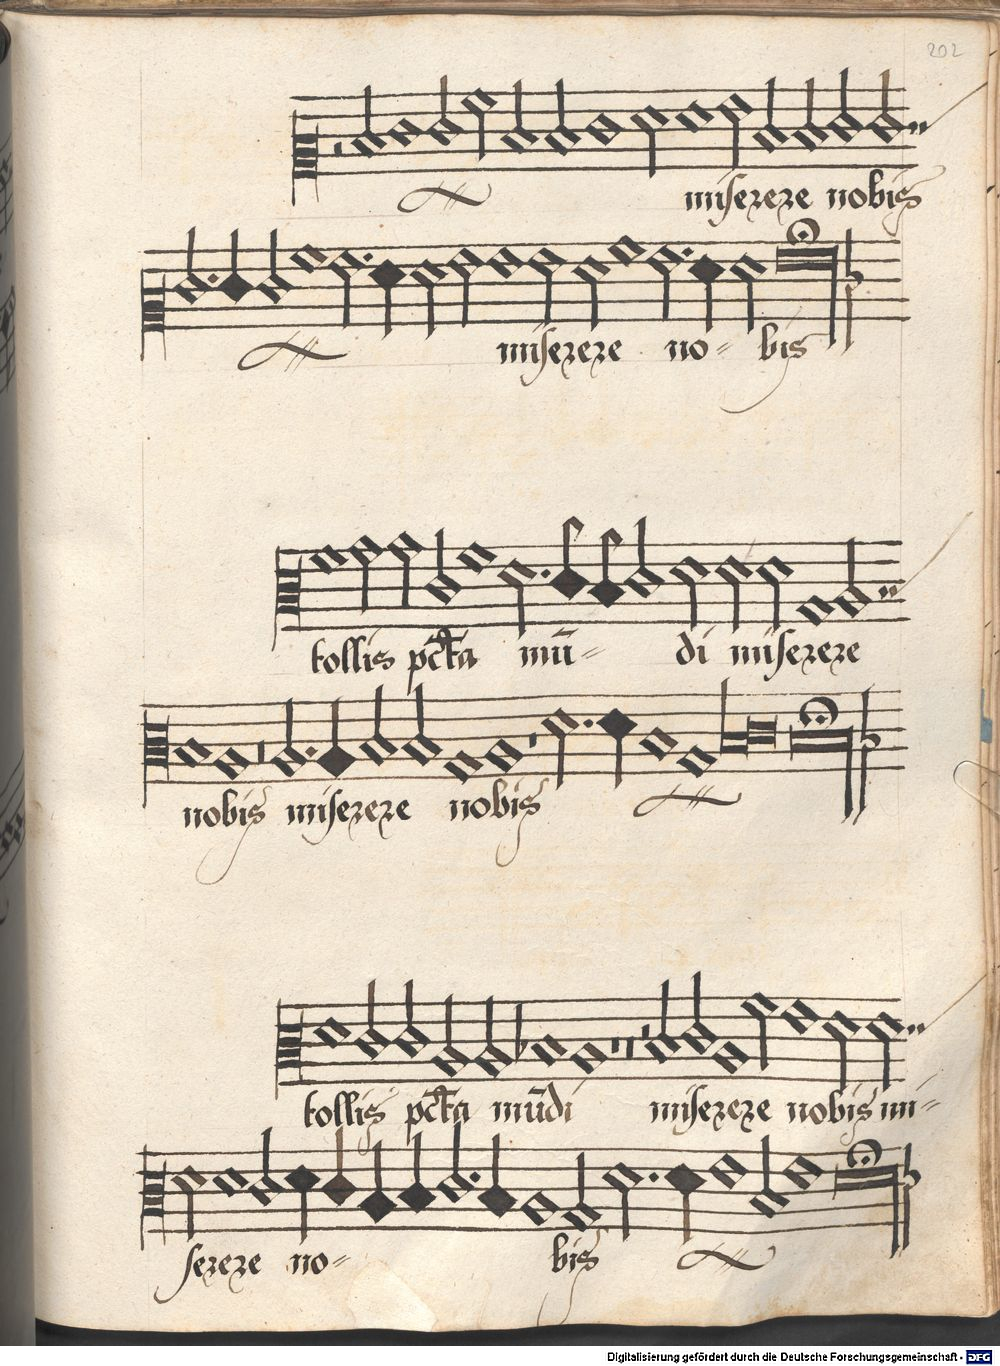 202
miserere nobis
miserere no- bis
tollis pc̄ta mū- di miserere
nobis miserere nobis
tollis pc̄ta mūdi miserere nobis mi-
serere no- bis
Digitalisierung gefördert durch die Deutsche Forschungsgemeinschaft - DFG